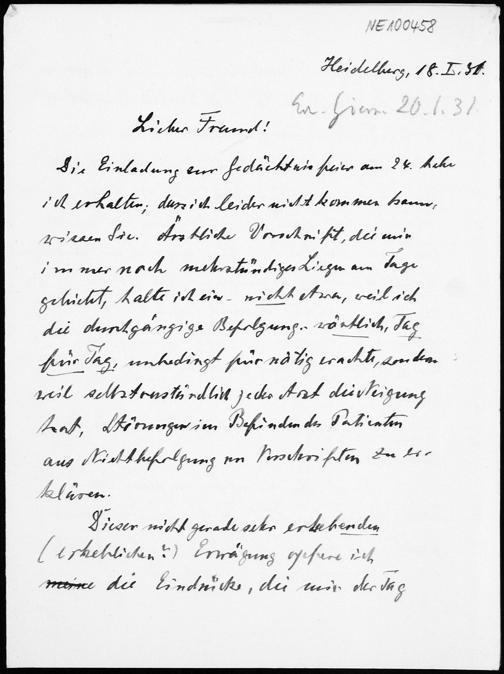 NE100458
Heidelberg, 18. I. 31.
20. I. 31
Lieber Freund!
Die Einladung zur Gedächtnisfeier am 24. habe
ich erhalten; dass ich leider nicht kommen kann,
wissen Sie. Ärztliche Vorschrift, die mir
immer noch mehrstündiges Liegen am Tage
gebietet, halte ich ein - nicht etwa, weil ich
die durchgängige Befolgung - wörtlich, Tag
für Tag, unbedingt für nötig erachte, sondern
weil selbstverständlich jeder Arzt die Neigung
hat, Störungen im Befinden des Patienten
aus Nichtbefolgung von Vorschriften zu er-
klären.
Dieser nicht gerade sehr erhebenden
(erheblichen?) Erwägung opfere ich
meine die Eindrücke, die mir der Tag